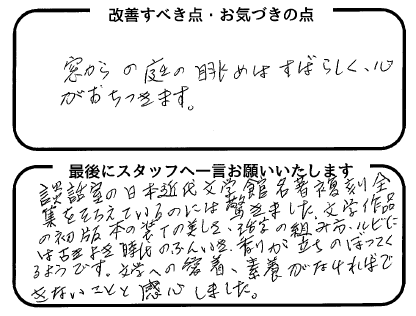 改善すべき点・お気づきの点
窓からの庭の眺めはすばらしく、心
がおちつきます。
最後にスタッフへ一言お願いいたします
談話室の日本近代文学館名著複刻全
集をそろえているのには驚きました。文学作品
の初版本の装丁の美しさ、活字の組み方、ルビに
は古き良き時代のふんいき、香りが立ちのぼってく
るようです。文学への愛着、素養がなければで
きないことと感心しました。